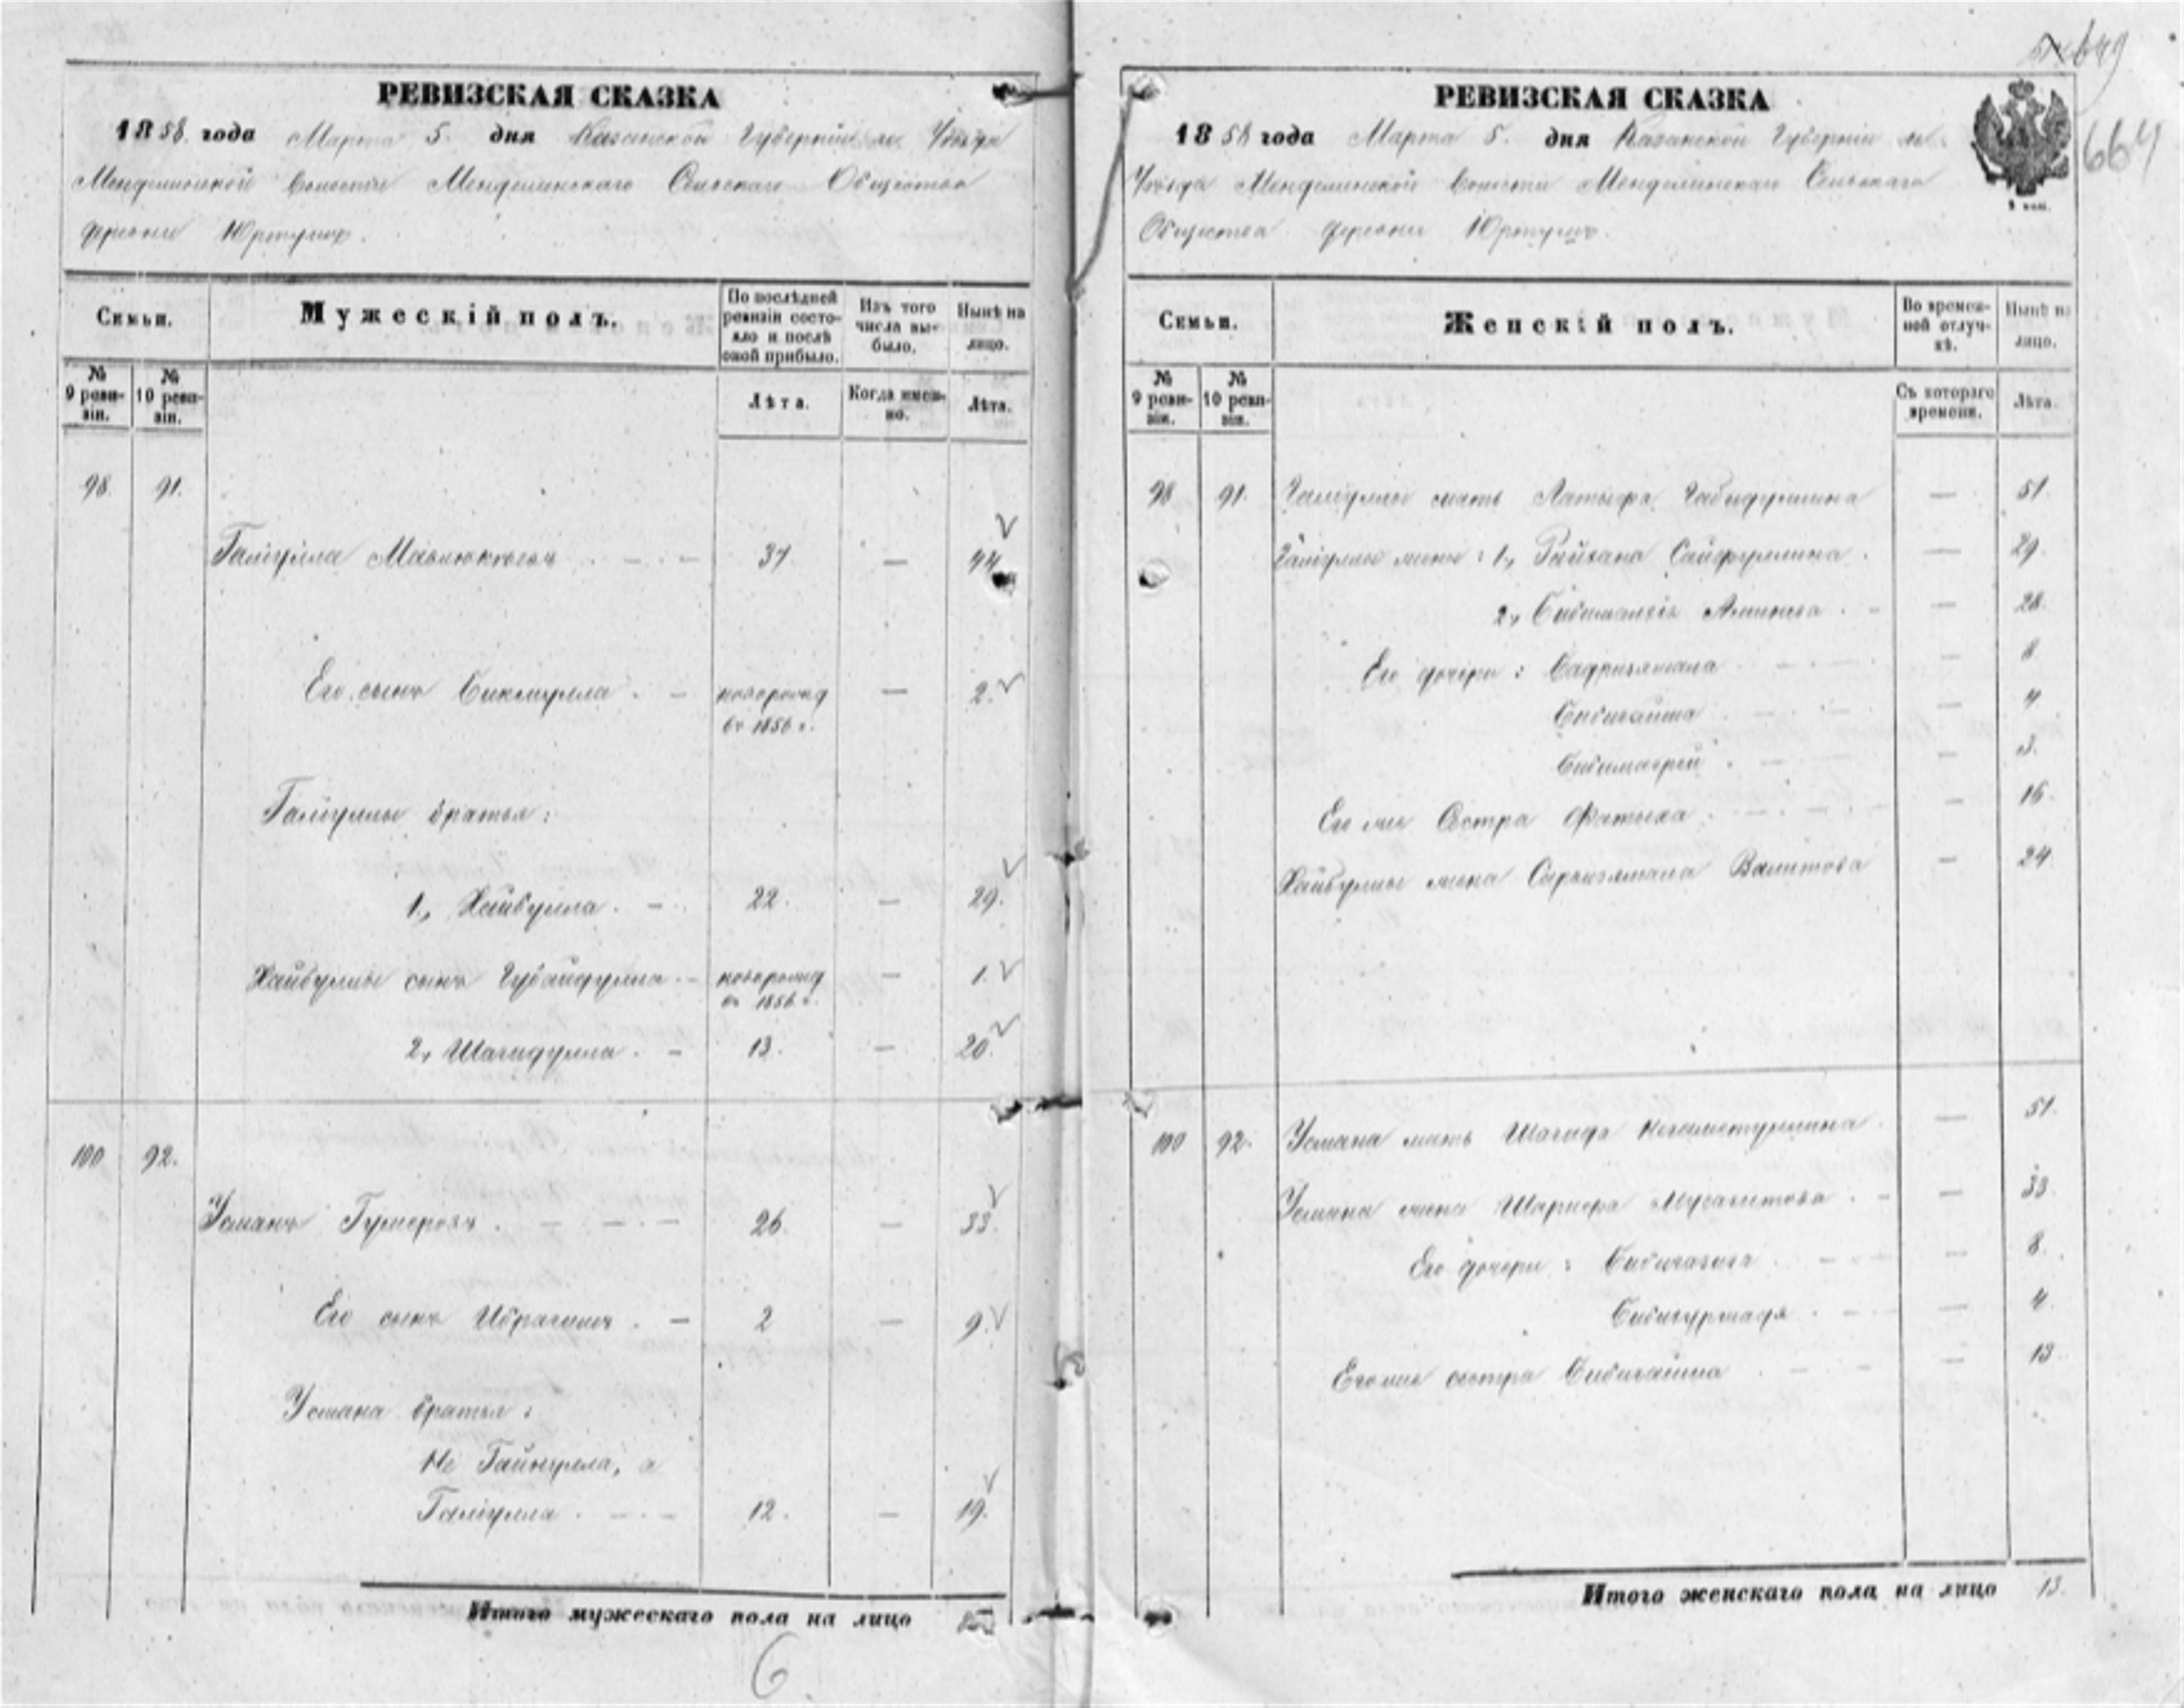 649
664
РЕВИЗСКАЯ СКАЗКА
1858 года Марта 5. дня Казанской Губерніи Уѣзда
Волости Сельскаго Общества
деревни Юртушъ.
Семьи.
Мужескій полъ.
По послѣдней ревизіи состояло и послѣ оной прибыло.
Изъ того числа выбыло.
Нынѣ на лицо.
№ 9 ревизіи.
№ 10 ревизіи.
Лѣта.
Когда именно.
Лѣта.
98. 91.
Галіулла 37 — 44
Его сынъ Бикмулла. — новорожд — 2.
въ 1856 г.
Галіуллы братья:
1., Хайбулла. — 22. — 29.
Хайбуллы сынъ Губайдулла — новорожд — 1.
въ 1856 г.
2, Шагидулла. — 13. — 20.
100 92.
Усманъ Гумеровъ. — 26. — 33.
Его сынъ Ибрагимъ. — 2 — 9.
Усмана братья:
Не Гайнулла, а
Галіулла — 12. — 19.
Итого мужескаго пола на лицо
6
РЕВИЗСКАЯ СКАЗКА
1858 года Марта 5. дня Казанской Губерніи
Уѣзда Волости Сельскаго
Общества деревни Юртушъ.
Семьи.
Женскій полъ.
Во временной отлучкѣ.
Нынѣ на лицо.
№ 9 ревизіи.
№ 10 ревизіи.
Съ котораго времени.
Лѣта.
98 91. Галіуллы мать Латыфа Габидуллина — 51.
Галіуллы жены: 1, Райхана Сайфуллина. — 29.
2, — 28.
Его дочери: Бадризямала — 8
Бибигайша — 4
— 3.
Его же Сестра Фатыха. — 16.
Хайбуллы жена Валитова — 24.
100 92. Усмана мать Шагида — 51.
Усмана жена Шарифа — 33.
Его дочери: Бибигазиза — 8.
— 4.
Его же сестра Бибигайша — 13.
Итого женскаго пола на лицо 13.